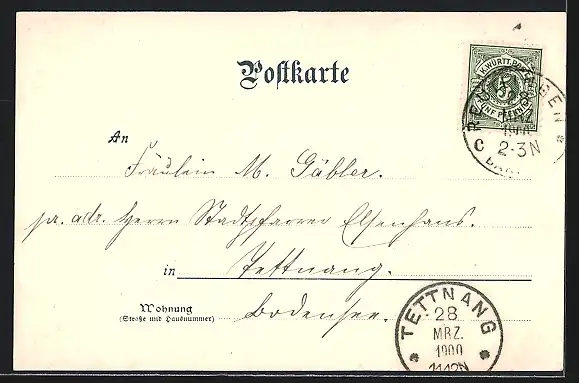 Postkarte
K. WÜRTT. POST
5
FÜNF PFENNIG
1900
C 2-3N
An
Fräulein M. Gäbler.
pr. adr. Herrn Stadtpfarrer Elsenhans.
in Tettnang.
Wohnung
(Straße und Hausnummer)
Bodensee.
TETTNANG
28
MRZ.
1900